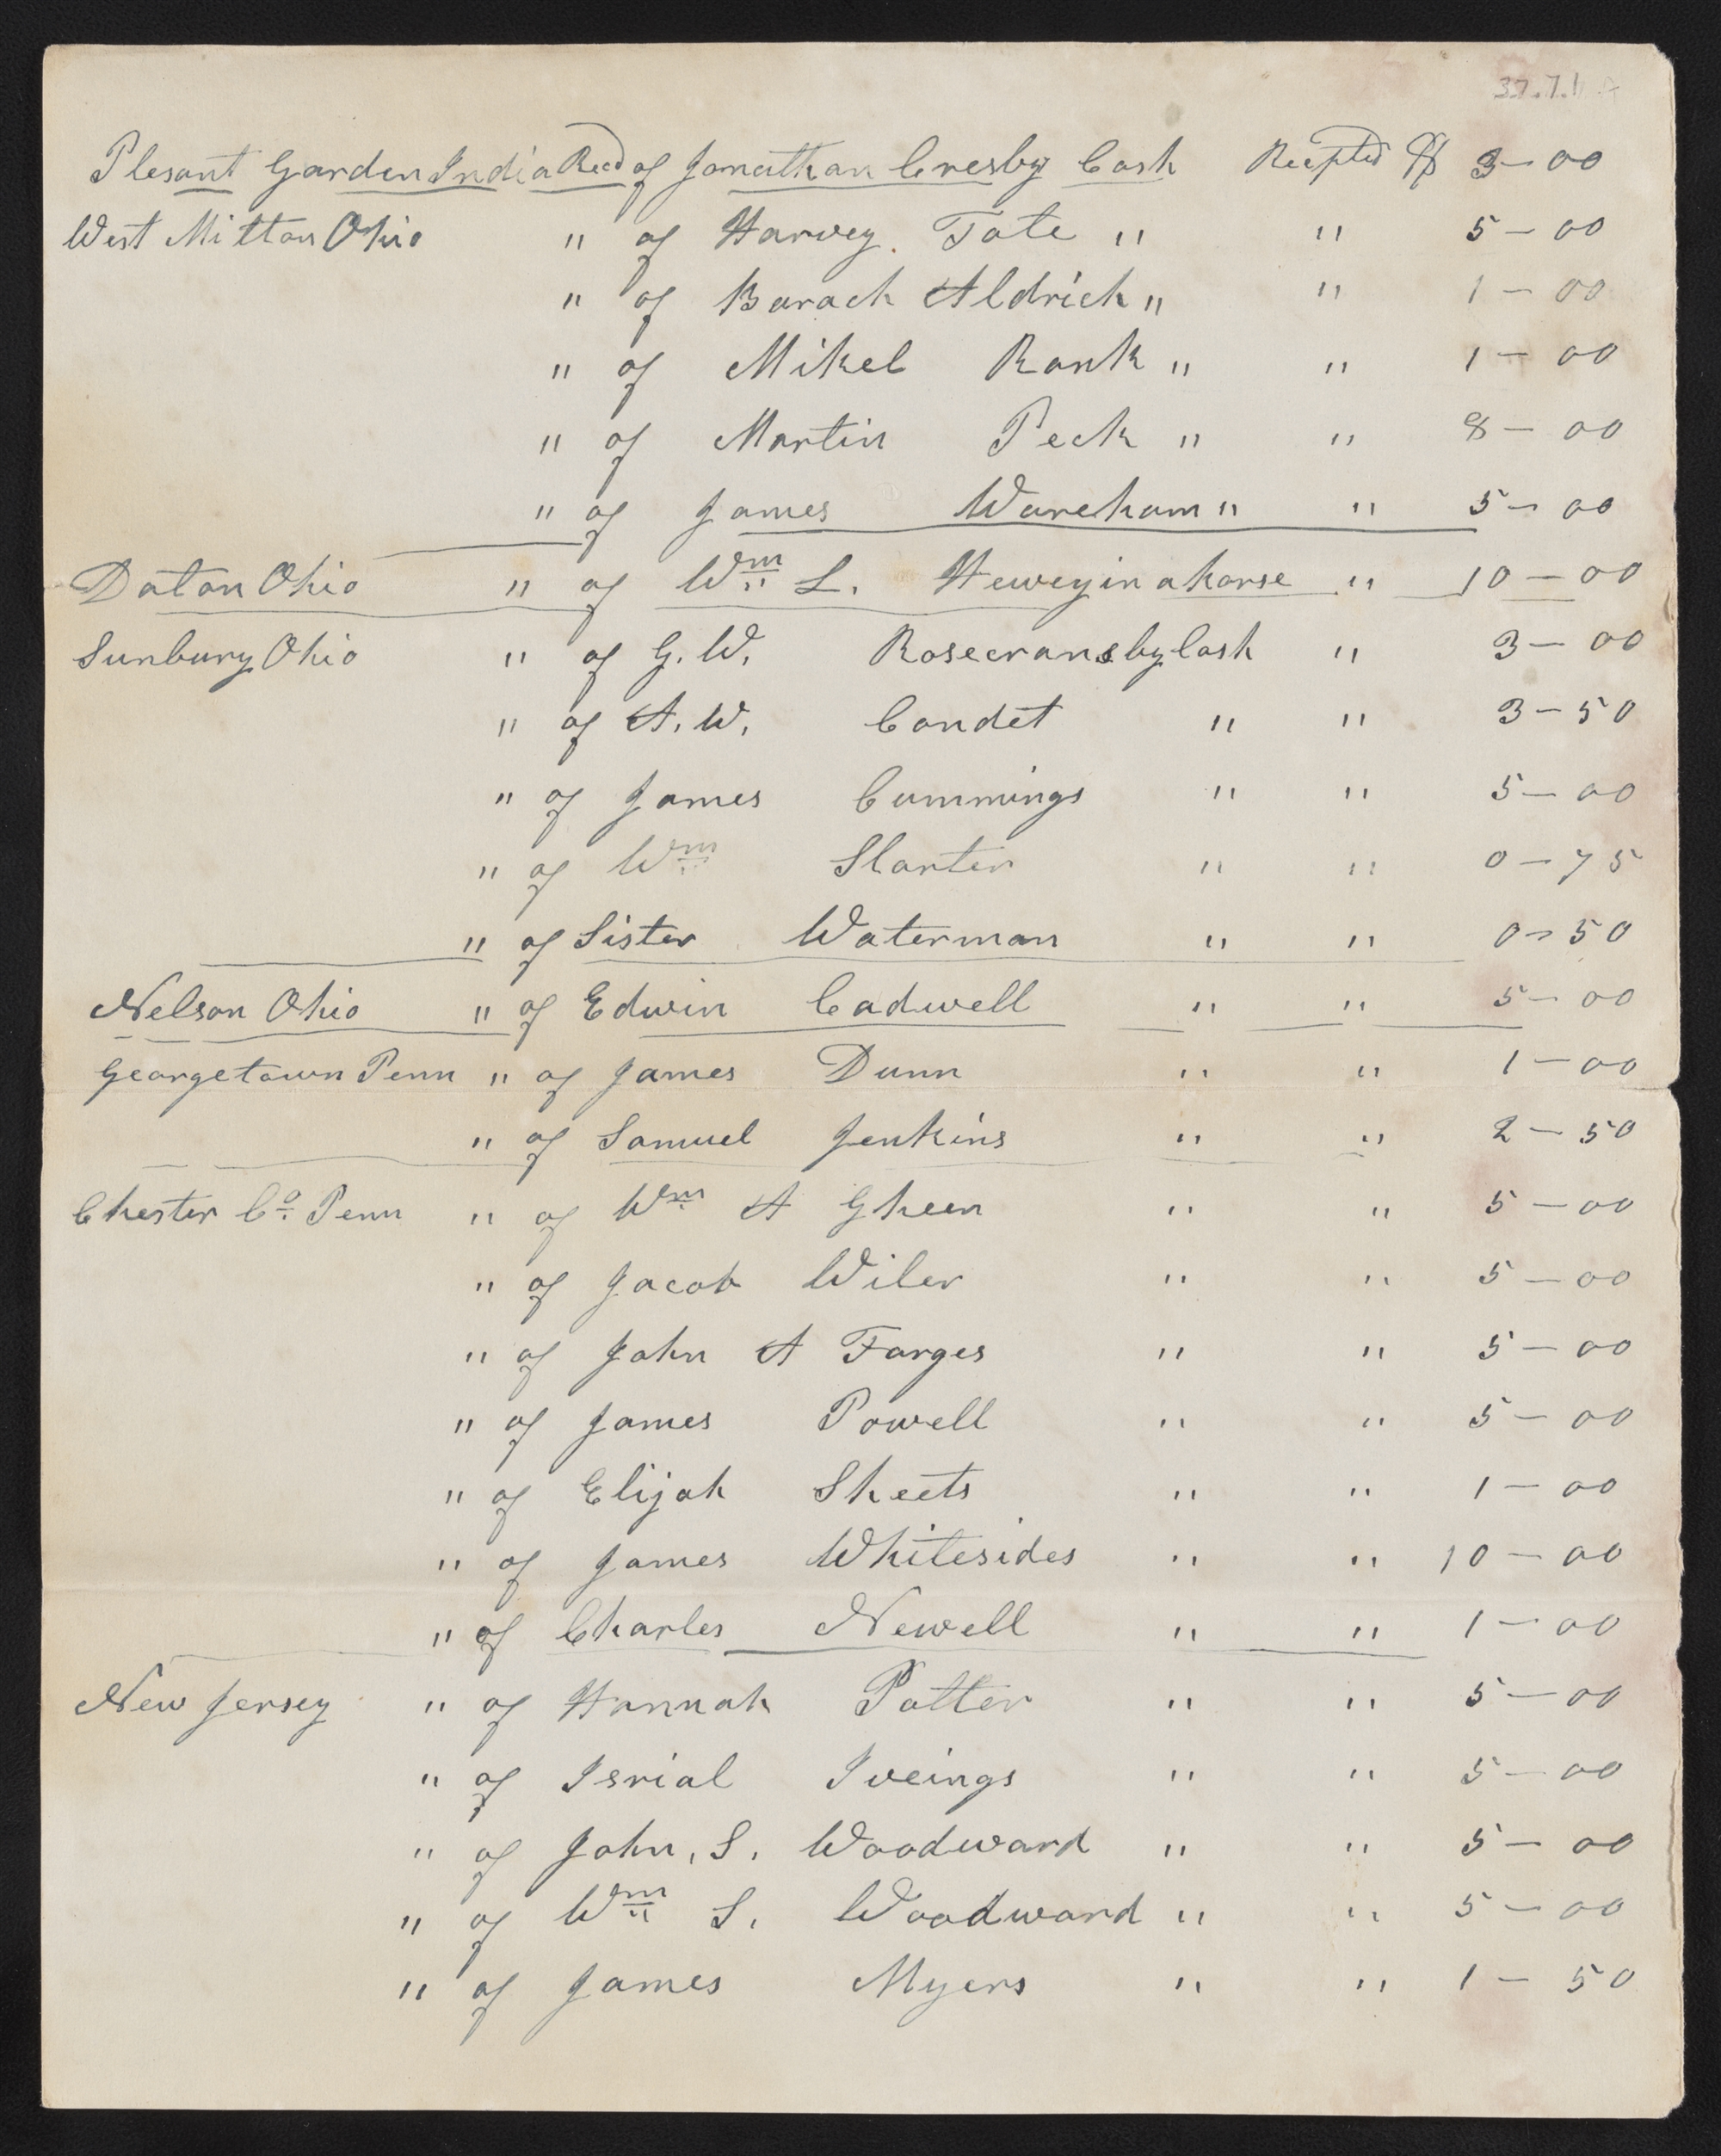 37.7.1
Plesant Garden India Recd of Jonathan Cresby Cash Recpted $ 3-00
West Milton Ohio " of Harvey. Tate " " 5-00
" of Barach Aldrich " " 1-00
" of Mikel Rank " " 1-00
" of Martin Peck " " 8-00
" of James Wareham " " 5-00
Daton Ohio " of Wm L. Hewey in a horse " 10-00
Sunbury Ohio " of G. W. Rosecrans by Cash " 3-00
" of A. W. Condet " " 3-50
" of James Cummings " " 5-00
" of Wm Slarter " " 0-75
" of Sister Waterman " " 0-50
Nelson Ohio " of Edwin Cadwell " " 5-00
Georgetown Penn " of James Dunn " " 1-00
" of Samuel Jenkins " " 2-50
Chester Co. Penn " of Wm A Gheen " " 5-00
" of Jacob Wiler " " 5-00
" of John A Farges " " 5-00
" of James Powell " " 5-00
" of Elijah Sheets " " 1-00
" of James Whitesides " " 10-00
" of Charles Newell " " 1-00
New Jersey " of Hannah Potter " " 5-00
" of Isrial Iveings " " 5-00
" of John, S. Woodward " " 5-00
" of Wm S. Woodward " " 5-00
" of James Myers " " 1-50